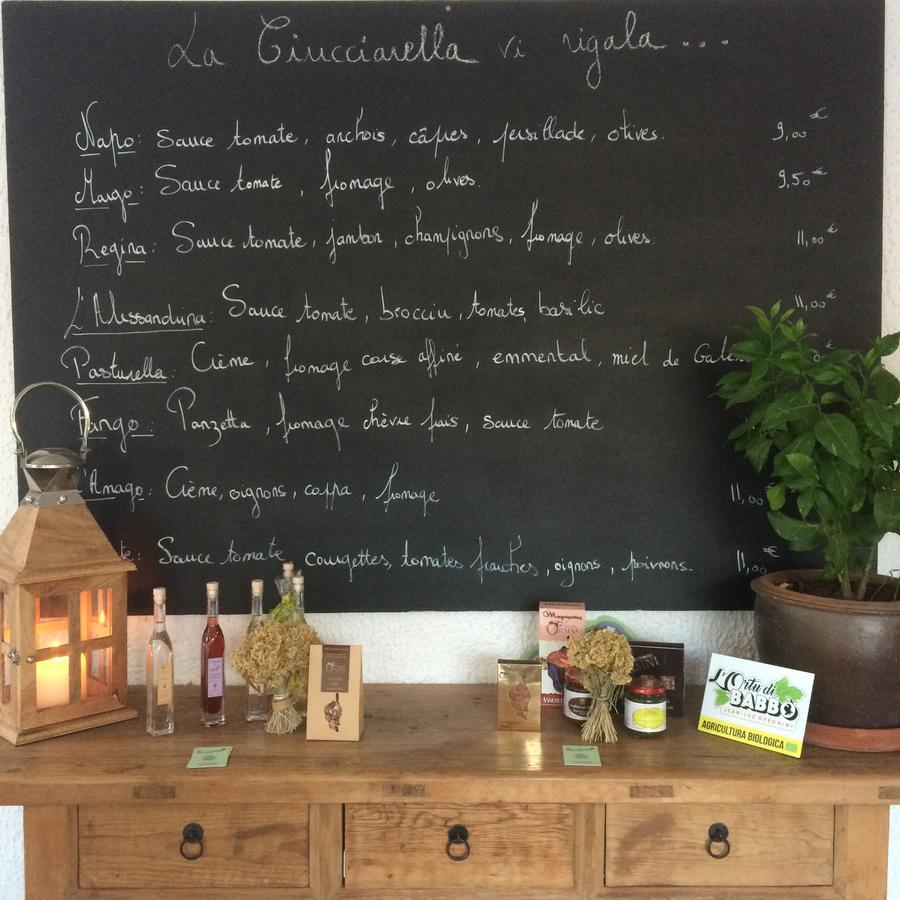 La Ciucciarella vi rigala ...
Napo: Sauce tomate, anchois, câpres, persillade, olives. 9,00€
Margo: Sauce tomate, fromage, olives. 9,50€
Regina: Sauce tomate, jambon, champignons, fromage, olives. 11,00€
L'Alessandrina: Sauce tomate, brocciu, tomates, basilic 11,00€
Pasturella: Crème, fromage corse affiné, emmental, miel de €
Fango: Panzetta, fromage chèvre frais, sauce tomate
Crème, oignons, coppa, fromage 11,00
Sauce tomate, courgettes, tomates fraîches, oignons, poivrons. 11,00€
L'Ortu di
BABBO
AGRICULTURA BIOLOGICA